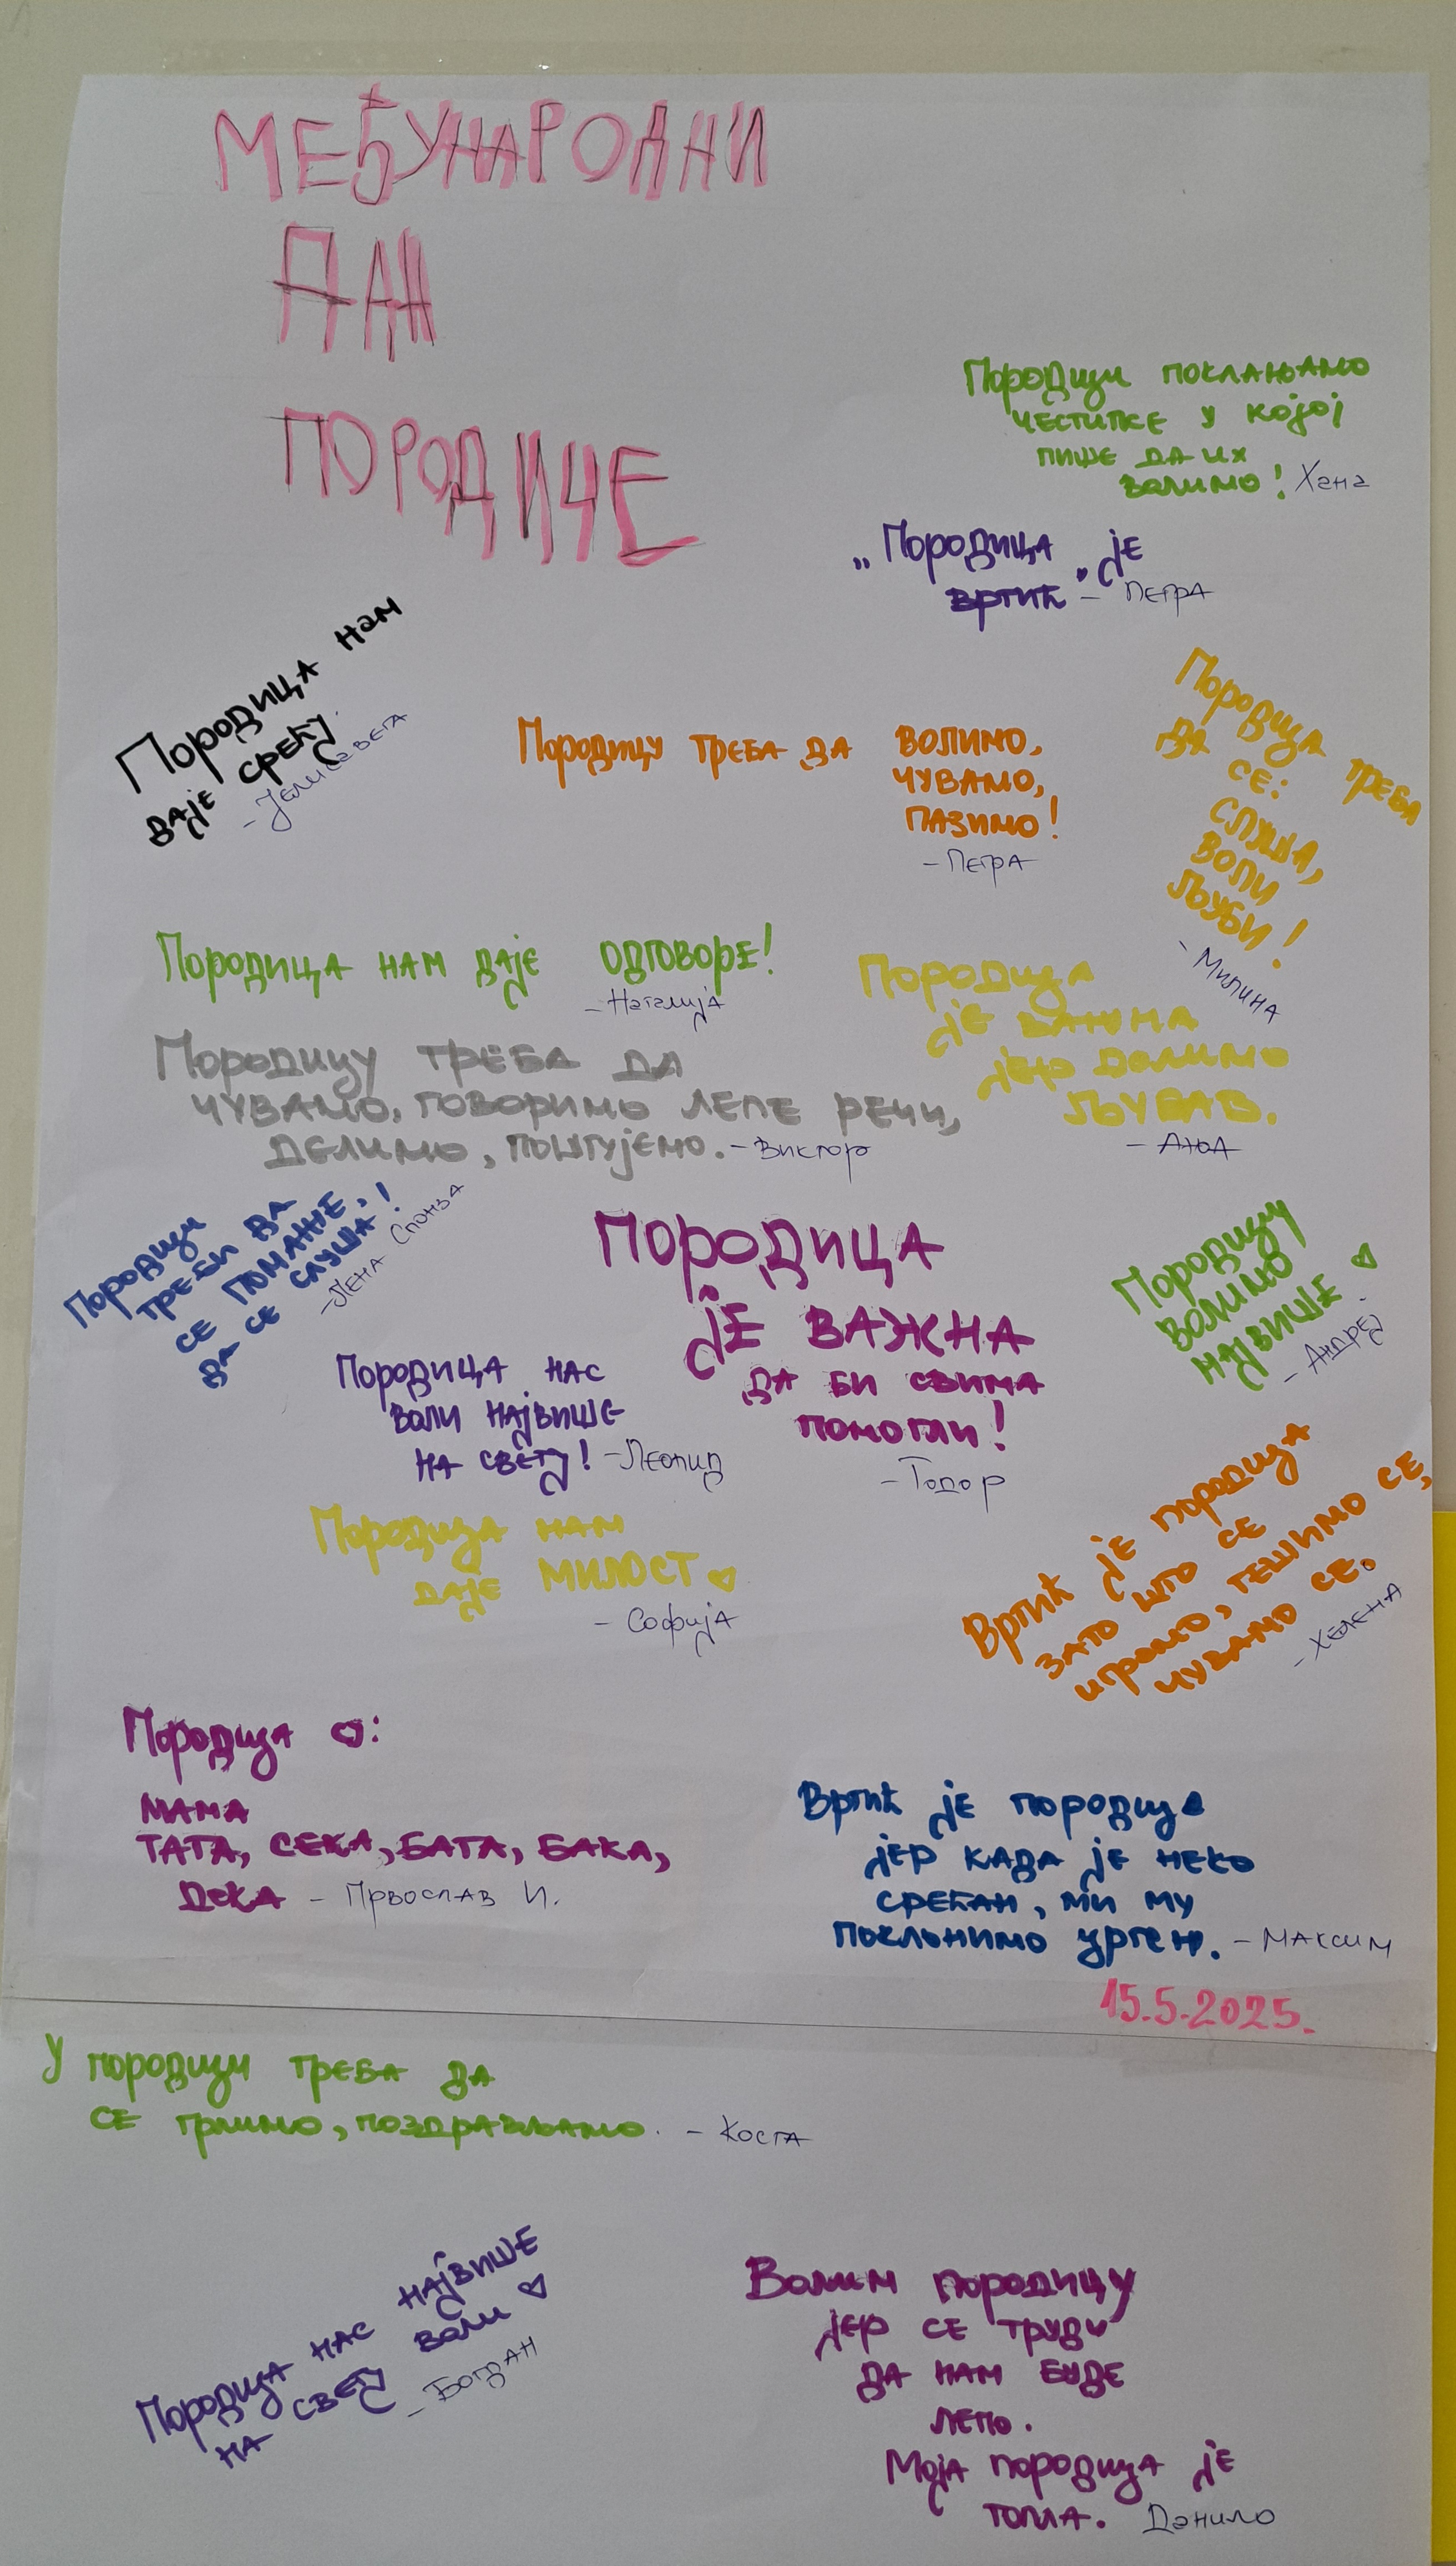 МЕЂУНАРОДНИ
ДАН
ПОРОДИЧЕ
Породици поклањамо
честитке у којој
пише да их
волимо! Хана
„Породица је
вртић." – Петра
Породица нам
даје срећу.
– Јелисавета
Породицу треба да волимо,
чувамо,
пазимо!
– Петра
Породица треба
да се:
слуша,
воли
љуби!
– Милина
Породица нам даје одговоре!
– Наталија
Породица
је важна
јер делимо
љубав.
– Ања
Породицу треба да
чувамо, говоримо лепе речи,
делимо, поштујемо. – Виктор
Породици
треби да
се помаже,
да се слуша!
– Лена
Породица
је важна
да би свима
помогли!
– Тодор
Породицу
волимо
највише
– Андреј
Породица нас
воли највише
на свету! – Леонид
Породица нам
даје милост
– Софија
Вртић је породица
зато што се
играмо, тешимо се,
чувамо се.
– Хелена
Породица :
мама
тата, сека, бата, бака,
дека – Првослав И.
Вртић је породица
јер када је неко
срећан, ми му
поклонимо – Максим
15.5.2025.
У породици треба да
се грлимо, поздрављамо. – Коста
Породица нас највише
на свету воли
– Богдан
Волим породицу
јер се труди
да нам буде
лепо.
Моја породица је
топла. Данило